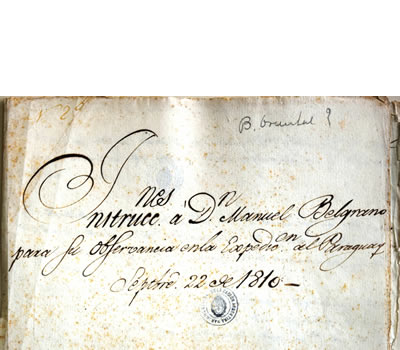 B. Oriental ?
Instrucc.nes a D.n Manuel Belgrano
para su observancia en la Expedic.on al Paraguay
Septbre. 22 de 1810 —